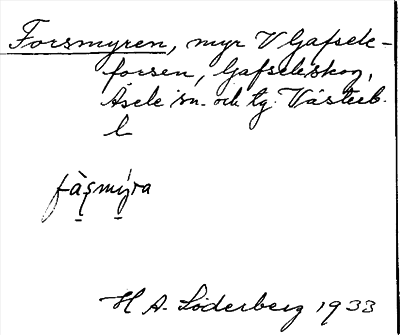 Forsmyren, myr V Gafsele-
forsen, Gafseleskog,
Åsele sn. och tg. Västerb.
l
fàʂmýra
H A. Söderberg 1933